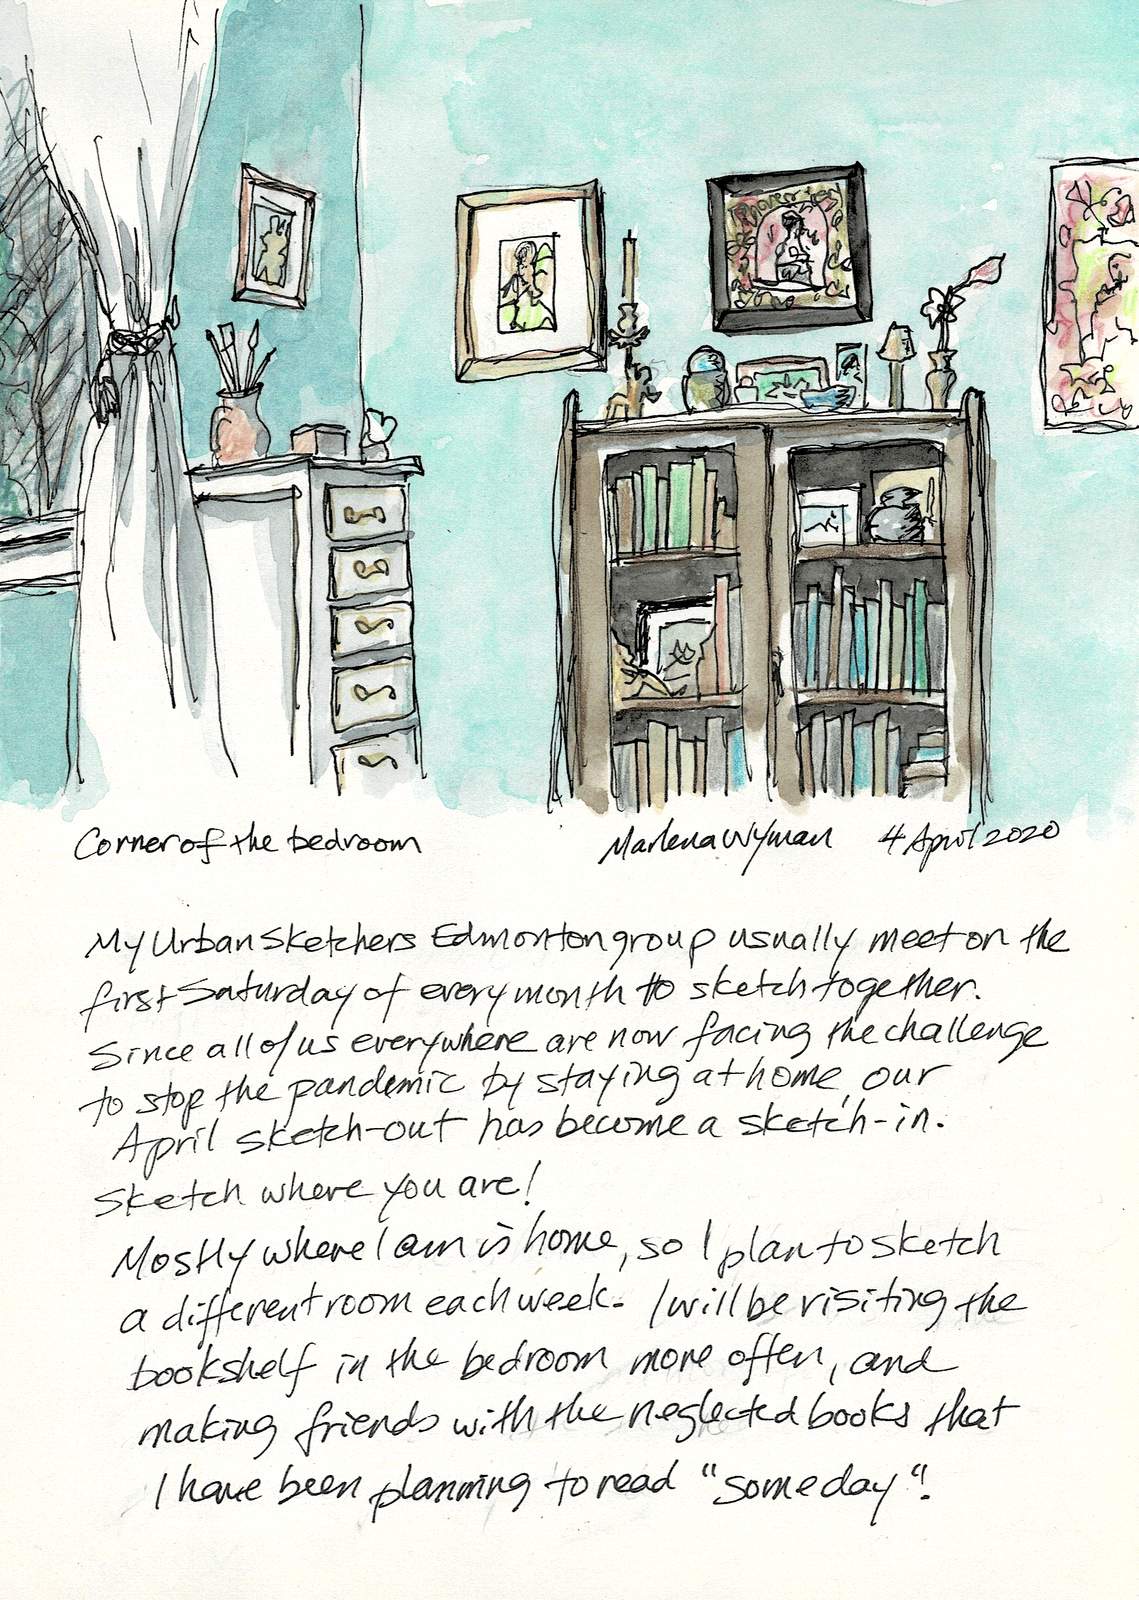 Corner of the bedroom Marlena Wyman 4 April 2020
My Urban Sketchers Edmonton group usually meet on the
first Saturday of every month to sketch together.
Since all of us everywhere are now facing the challenge
to stop the pandemic by staying at home, our
April sketch-out has become a sketch-in.
Sketch where you are!
Mostly where I am is home, so I plan to sketch
a different room each week. I will be visiting the
bookshelf in the bedroom more often, and
making friends with the neglected books that
I have been planning to read "someday".